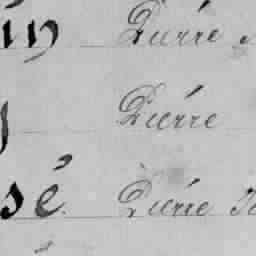 in Pierre
Pierre
sé Pierre